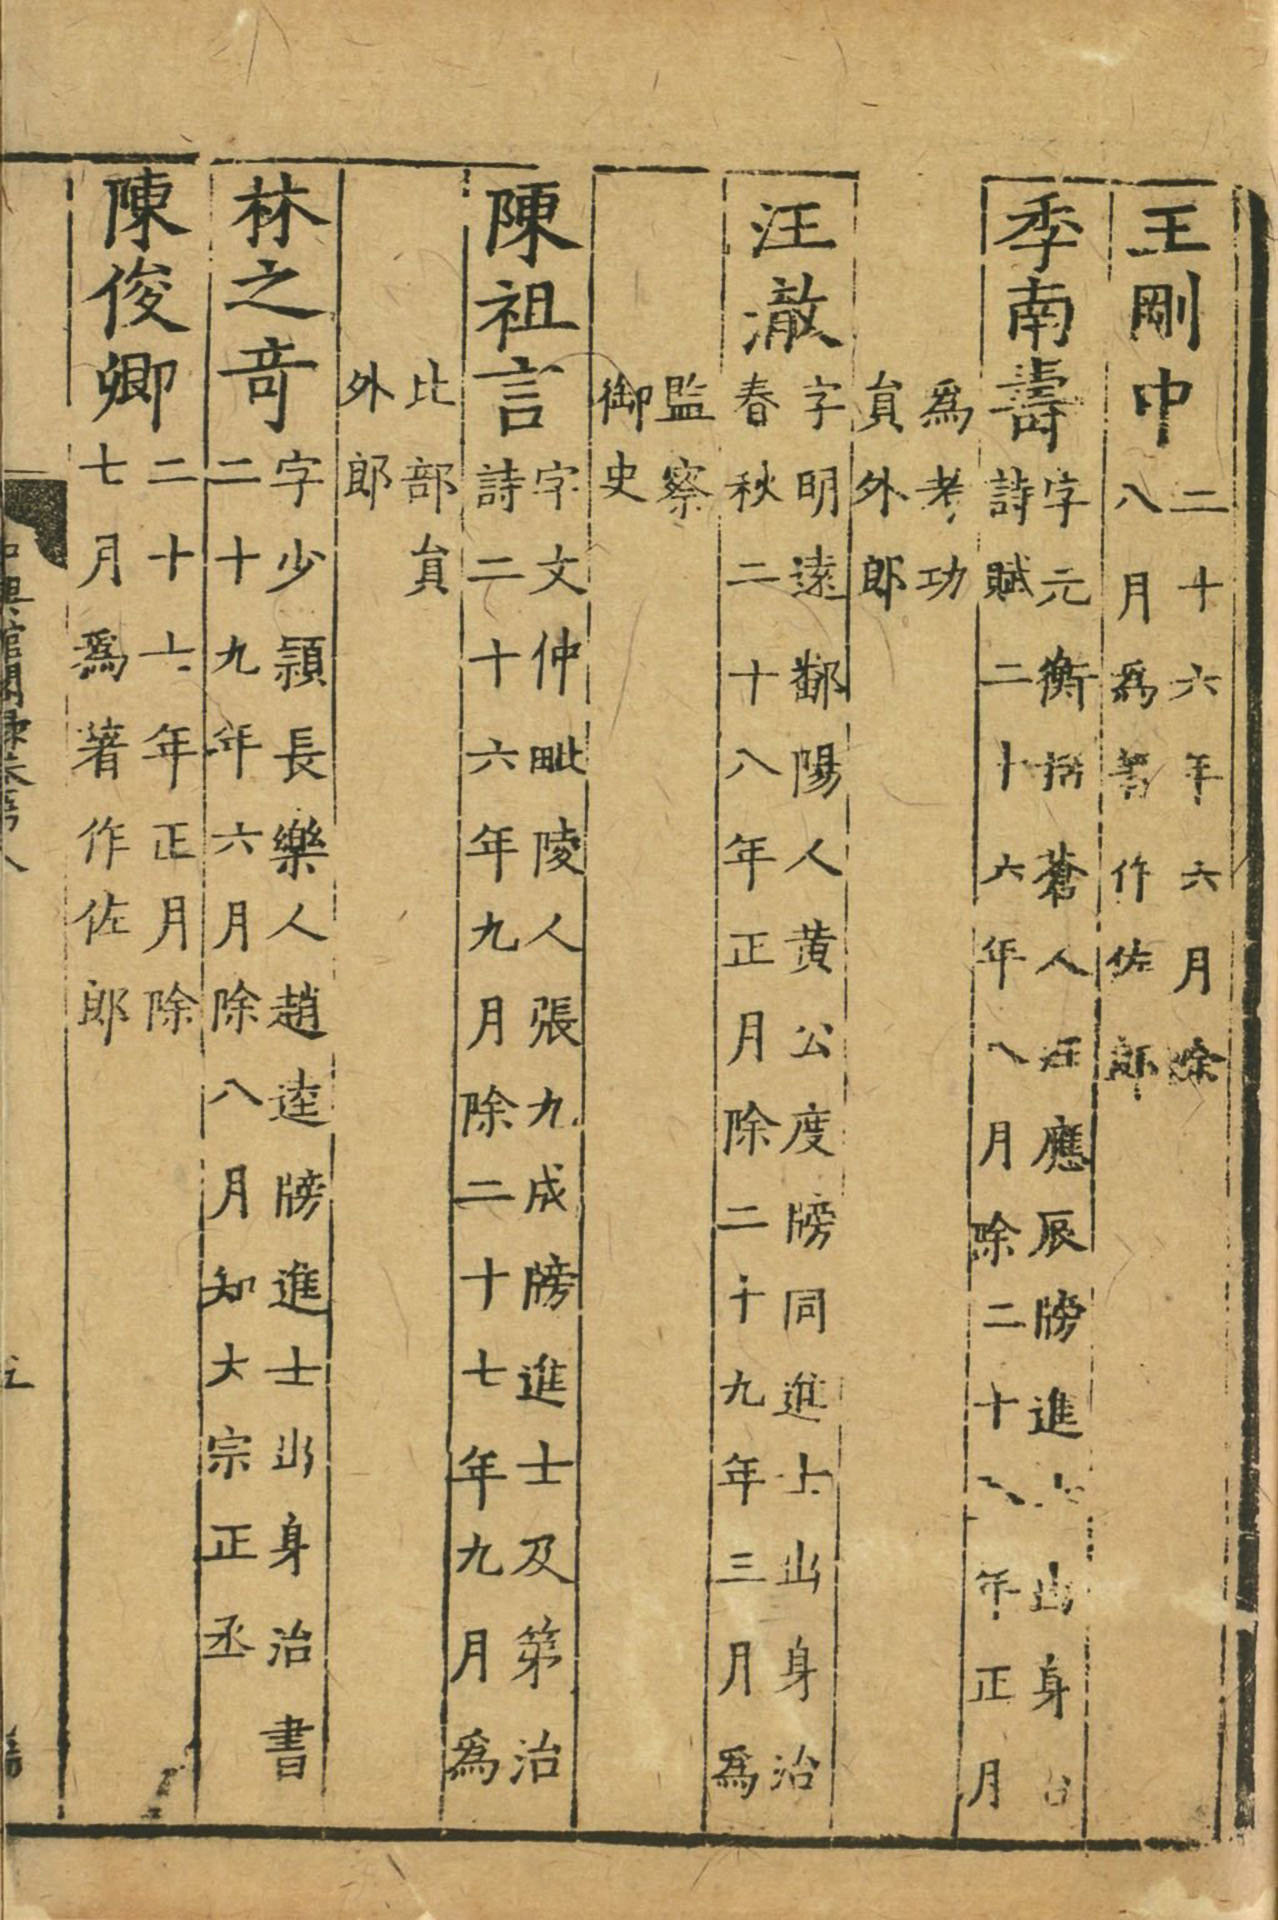 王剛中二十六年六月除
八月為著作佐郎
季南壽字元衡括蒼人汪應辰牓進士出身治
詩賦二十六年八月除二十八年正月
為考功
員外郎
汪澈字明遠鄱陽人黃公度牓同進士出身治
春秋二十八年正月除二十九年三月為
監察
御史
陳祖言字文仲毗陵人張九成牓進士及第治
詩二十六年九月除二十七年九月為
比部員
外郎
林之竒字少穎長樂人趙逵牓進士出身治書
二十九年六月除八月知大宗正丞
陳俊卿二十七年正月除
七月為著作佐郎
中興館閣錄卷第八